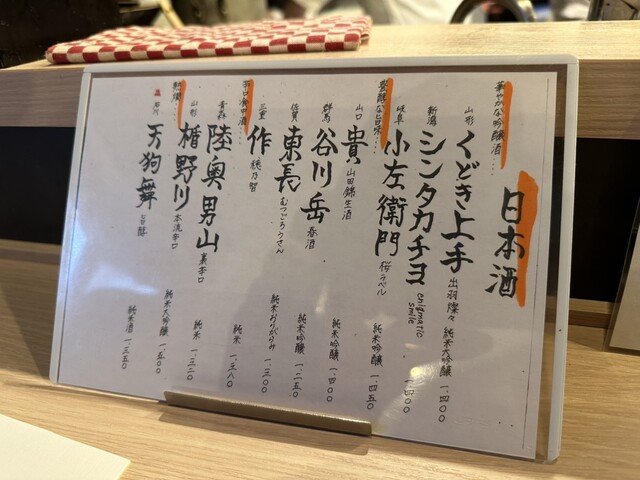 日本酒
華やかな吟醸酒…
山形 くどき上手 出羽燦々 純米大吟醸 一.四〇〇
新潟 シンタカチヨ enigmatic smile 純米吟醸 一.四〇〇
豊醇な旨味…
岐阜 小左衛門 桜ラベル 純米吟醸 一.四五〇
山口 貴 山田錦生酒 純米吟醸 一.四〇〇
群馬 谷川岳 春酒 純米吟醸 一.二五〇
佐賀 東長 むつごろうさん 純米おりがらみ 一.三〇〇
辛口食中酒
三重 作 穂乃智 純米 一.三八〇
青森 陸奥男山 裏辛口 純米 一.三二〇
山形 楯野川 本流辛口 純米大吟醸 一.五〇〇
石川 天狗舞 旨醇 純米酒 一.三五〇